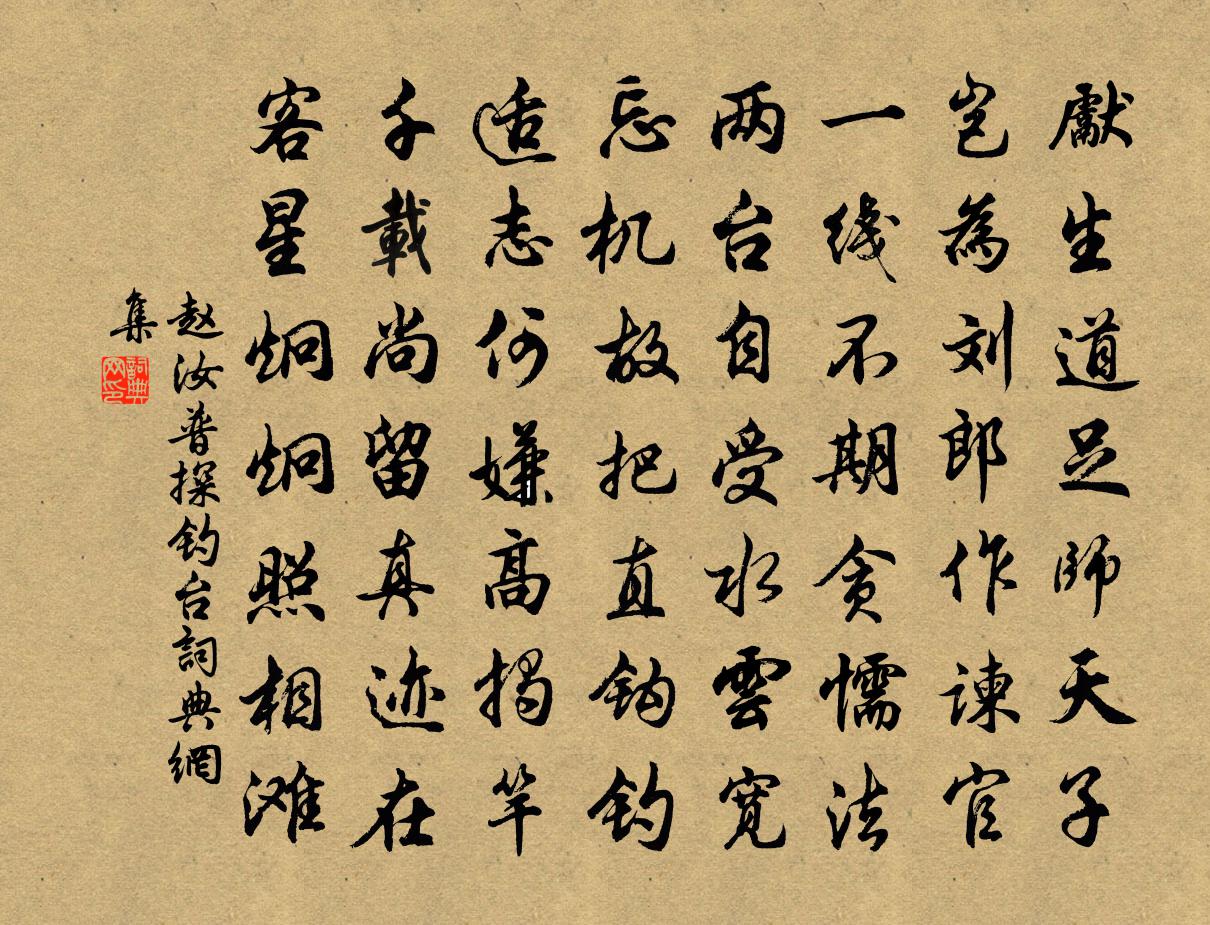 獻生道足師天子
岂為刘郎作諫官
一线不期贪懦法
两台自受水雲宽
忘机故把直钩钓
适志何嫌高揭竿
千載尚留真迹在
客星炯炯照相滩
赵汝普探钓台詞典網
集
詞典网印